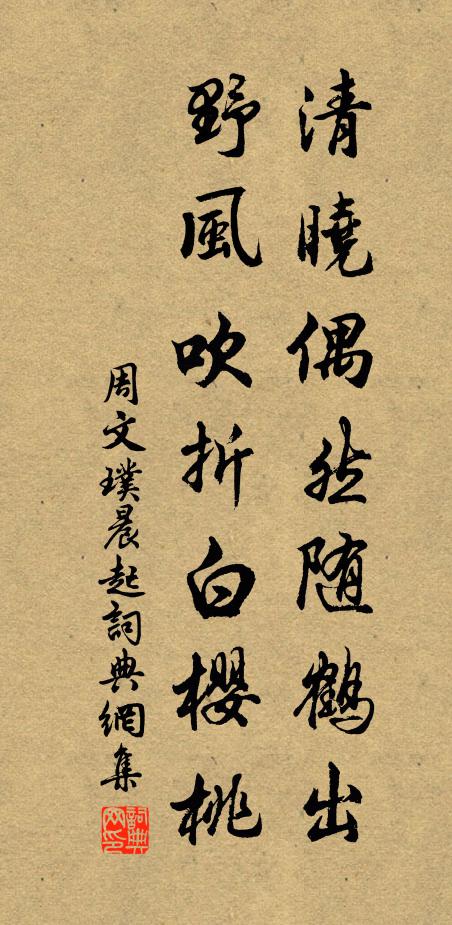 清曉偶然随鶴出
野風吹折白櫻桃
周文璞晨起詞典網集
詞典网印